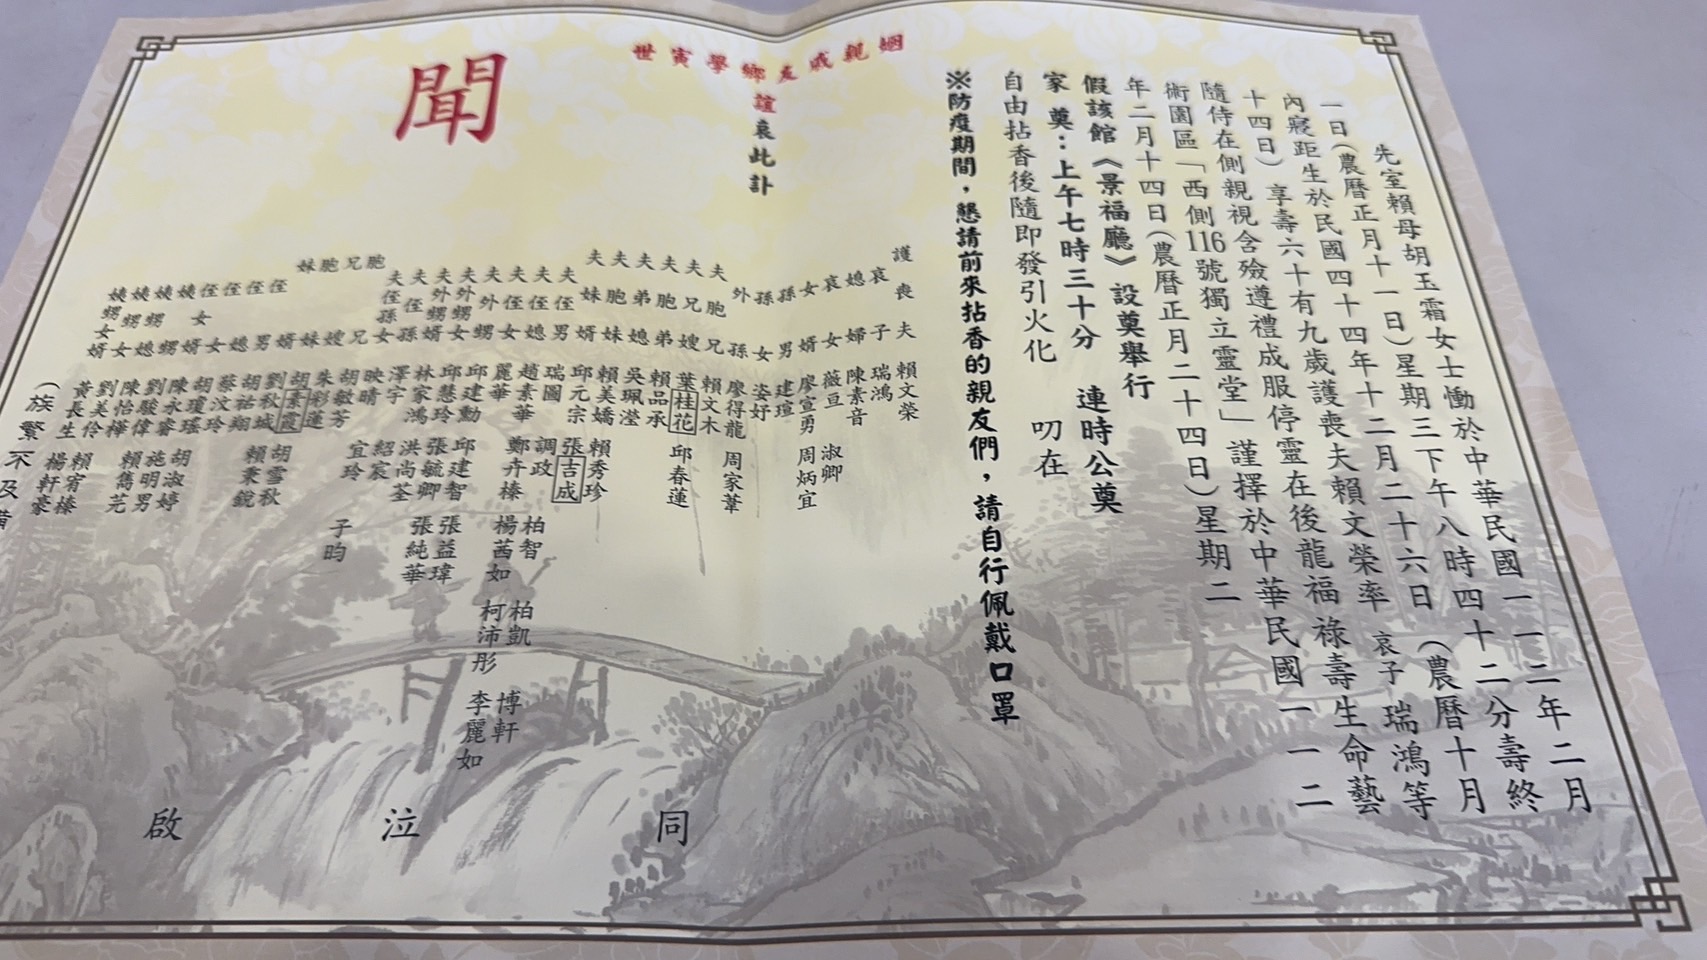 先室賴母胡玉霜女士慟於中華民國一一二年二月
一日(農曆正月十一日)星期三下午八時四十二分壽終
內寢距生於民國四十四年十二月二十六日(農曆十月
十四日)享壽六十有九歲護喪夫賴文榮率 哀子 瑞鴻等
隨侍在側親視含殮遵禮成服停靈在後龍福祿壽生命藝
術園區「西側116號獨立靈堂」謹擇於中華民國一一二
年二月十四日(農曆正月二十四日)星期二
假該館《景福廳》設奠舉行
家 奠：上午七時三十分 連時公奠
自由拈香後隨即發引火化 叨在
※防疫期間，懇請前來拈香的親友們，請自行佩戴口罩
姻親戚友鄉學寅世
誼哀此訃
聞
護喪夫 賴文榮
哀子 瑞鴻
媳婦 陳素音
哀女 薇亘 淑卿
女婿 廖宣勇 周炳宜
孫男 建瑄
孫女 姿妤
外孫 廖得龍 周家葦
夫胞兄 賴文木
夫兄嫂 葉桂花 邱春蓮
夫胞弟 賴品承
夫弟媳 吳珮瀅
夫胞妹 賴美嬌 賴秀珍
夫妹婿 邱元宗 張吉成
夫侄男 瑞圖 調政 柏智 柏凱 博軒
夫侄媳 趙素華 鄭卉榛 楊茜如 柯沛彤 李麗如
夫侄女 麗華
夫外甥 邱建勳 邱建智 張益瑋
夫外甥女 邱慧玲 張毓卿 張純華
夫外甥婿 林家鴻 洪尚荃
夫侄孫 澤宇 紹宸
夫侄孫女 映晴 宜玲 子昀
胞兄 胡敏芳
兄嫂 朱彩蓮
胞妹 胡素霞 胡雪秋
妹婿 劉秋城 賴秉銳
侄男 胡祐翔
侄媳 蔡汶玲
侄女 胡瓊瑤 胡淑婷
侄女婿 陳永睿 施明男
姨甥 劉駿偉 賴雋芫
姨甥媳 陳怡樺
姨甥女 劉美伶 賴宥榛
姨甥女婿 黃長生 楊軒豪
(族繁不及
同泣啟